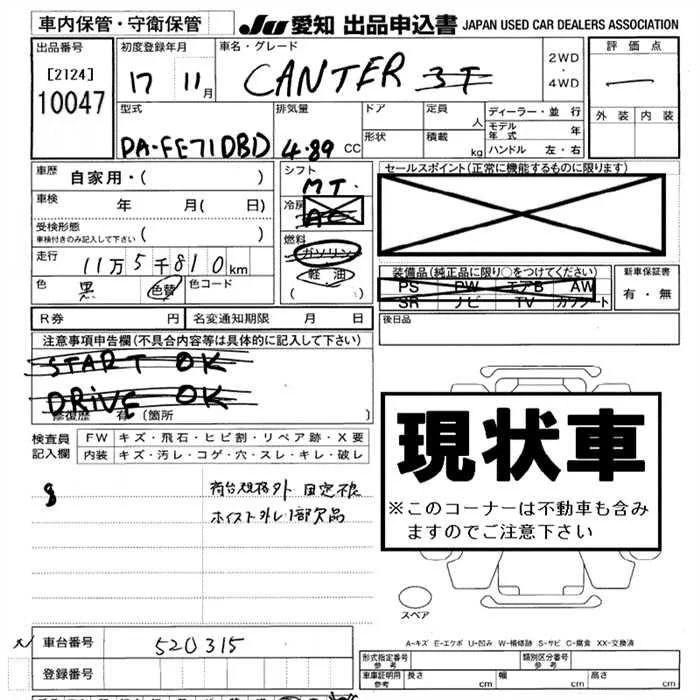 車内保管・守衛保管
JU 愛知 出品申込書 JAPAN USED CAR DEALERS ASSOCIATION
出品番号 初度登録年月 車名・グレード 2WD・4WD 評価点
[2124] 17 11月 CANTER 3T —
10047 外装 内装
型式 排気量 ドア 定員 人 ディーラー・並行
形状 積載 kg モデル年式 年
PA-FE71DBD 4.89 CC ハンドル 左・右
車歴 自家用・( ) シフト MT. セールスポイント(正常に機能するものに限ります)
車検 年 月( 日) 冷房 AC
受検形態 ( )
車検付きのみ記入して下さい
燃料 ガソリン
走行 11万5千810km 軽油
( )
装備品(純正品に限り○をつけてください) 新車保証書
色 黒 色替 色コード PS PW エアB AW 有・無
SR ナビ TV カワシート
R券 円 名変通知期限 月 日 後日品
注意事項申告欄(不具合内容等は具体的に記入して下さい)
START OK
DRIVE OK
修復歴 有〔箇所 〕
検査員記入欄 FW キズ・飛石・ヒビ割・リペア跡・X要
内装 キズ・汚レ・コゲ・穴・スレ・キレ・破レ
現状車
※このコーナーは不動車も含み
ますのでご注意下さい
8 荷台規格外 固定不良
ホイスト外レ・1部欠品
スペア
A-キズ E-エクボ U-凹み W-補修跡 S-サビ C-腐食 XX-交換済
車台番号 520315
登録番号
形式指定番号 参考 類別区分番号 参考
車庫証明用 参考 長さ cm 幅 cm 高さ cm